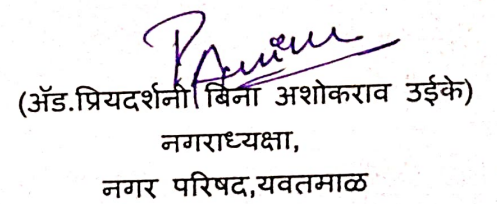 (ॲड.प्रियदर्शनी बिना अशोकराव उईके)
नगराध्यक्षा,
नगर परिषद,यवतमाळ